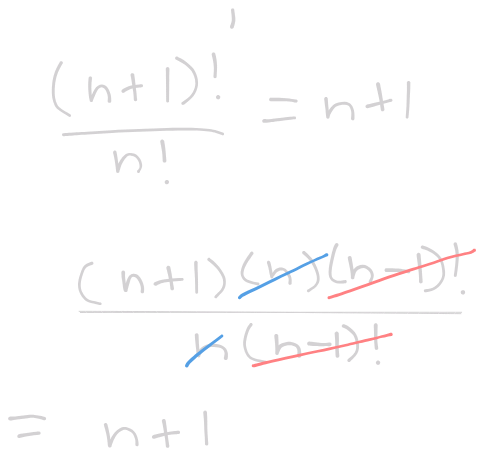 (n+1)!
/ n! = n+1
(n+1)(n)(n-1)!
/ n(n-1)!
= n+1